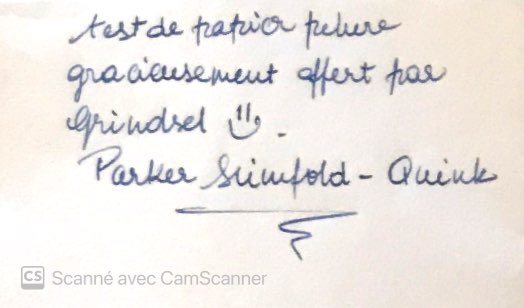 test de papier pelure
gracieusement offert par
Grindsel
Parker Slimfold - Quink
CS Scanné avec CamScanner